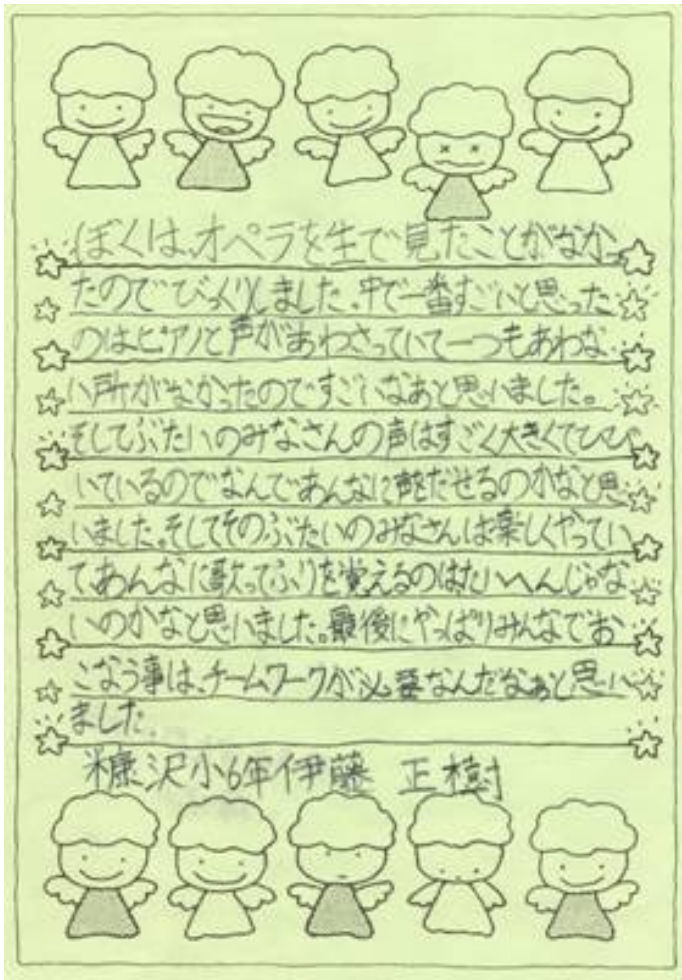 ぼくは、オペラを生で見たことがなかっ
たのでびっくりしました。中で一番すごいと思った
のはピアノと声があわさっていて一つもあわな
い所がなかったのですごいなあと思いました。
そしてぶたいのみなさんの声はすごく大きくてひび
いているのでなんであんなに声だせるのかなと思
いました。そしてそのぶたいのみなさんは楽しくやってい
てあんなに歌ってふりを覚えるのはたいへんじゃな
いのかなと思いました。最後にやっぱりみんなでお
こなう事は、チームワークが必要なんだなぁと思い
ました。
糠沢小6年伊藤 正樹